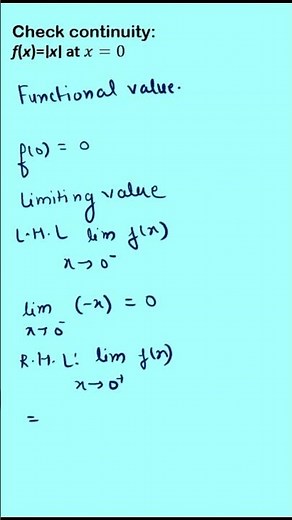 Check continuity:
f(x)=|x| at x = 0
Functional value.
f(0) = 0
Limiting value
L.H.L lim f(x)
x→0⁻
lim (-x) = 0
x→0⁻
R.H.L: lim f(x)
x→0⁺
=